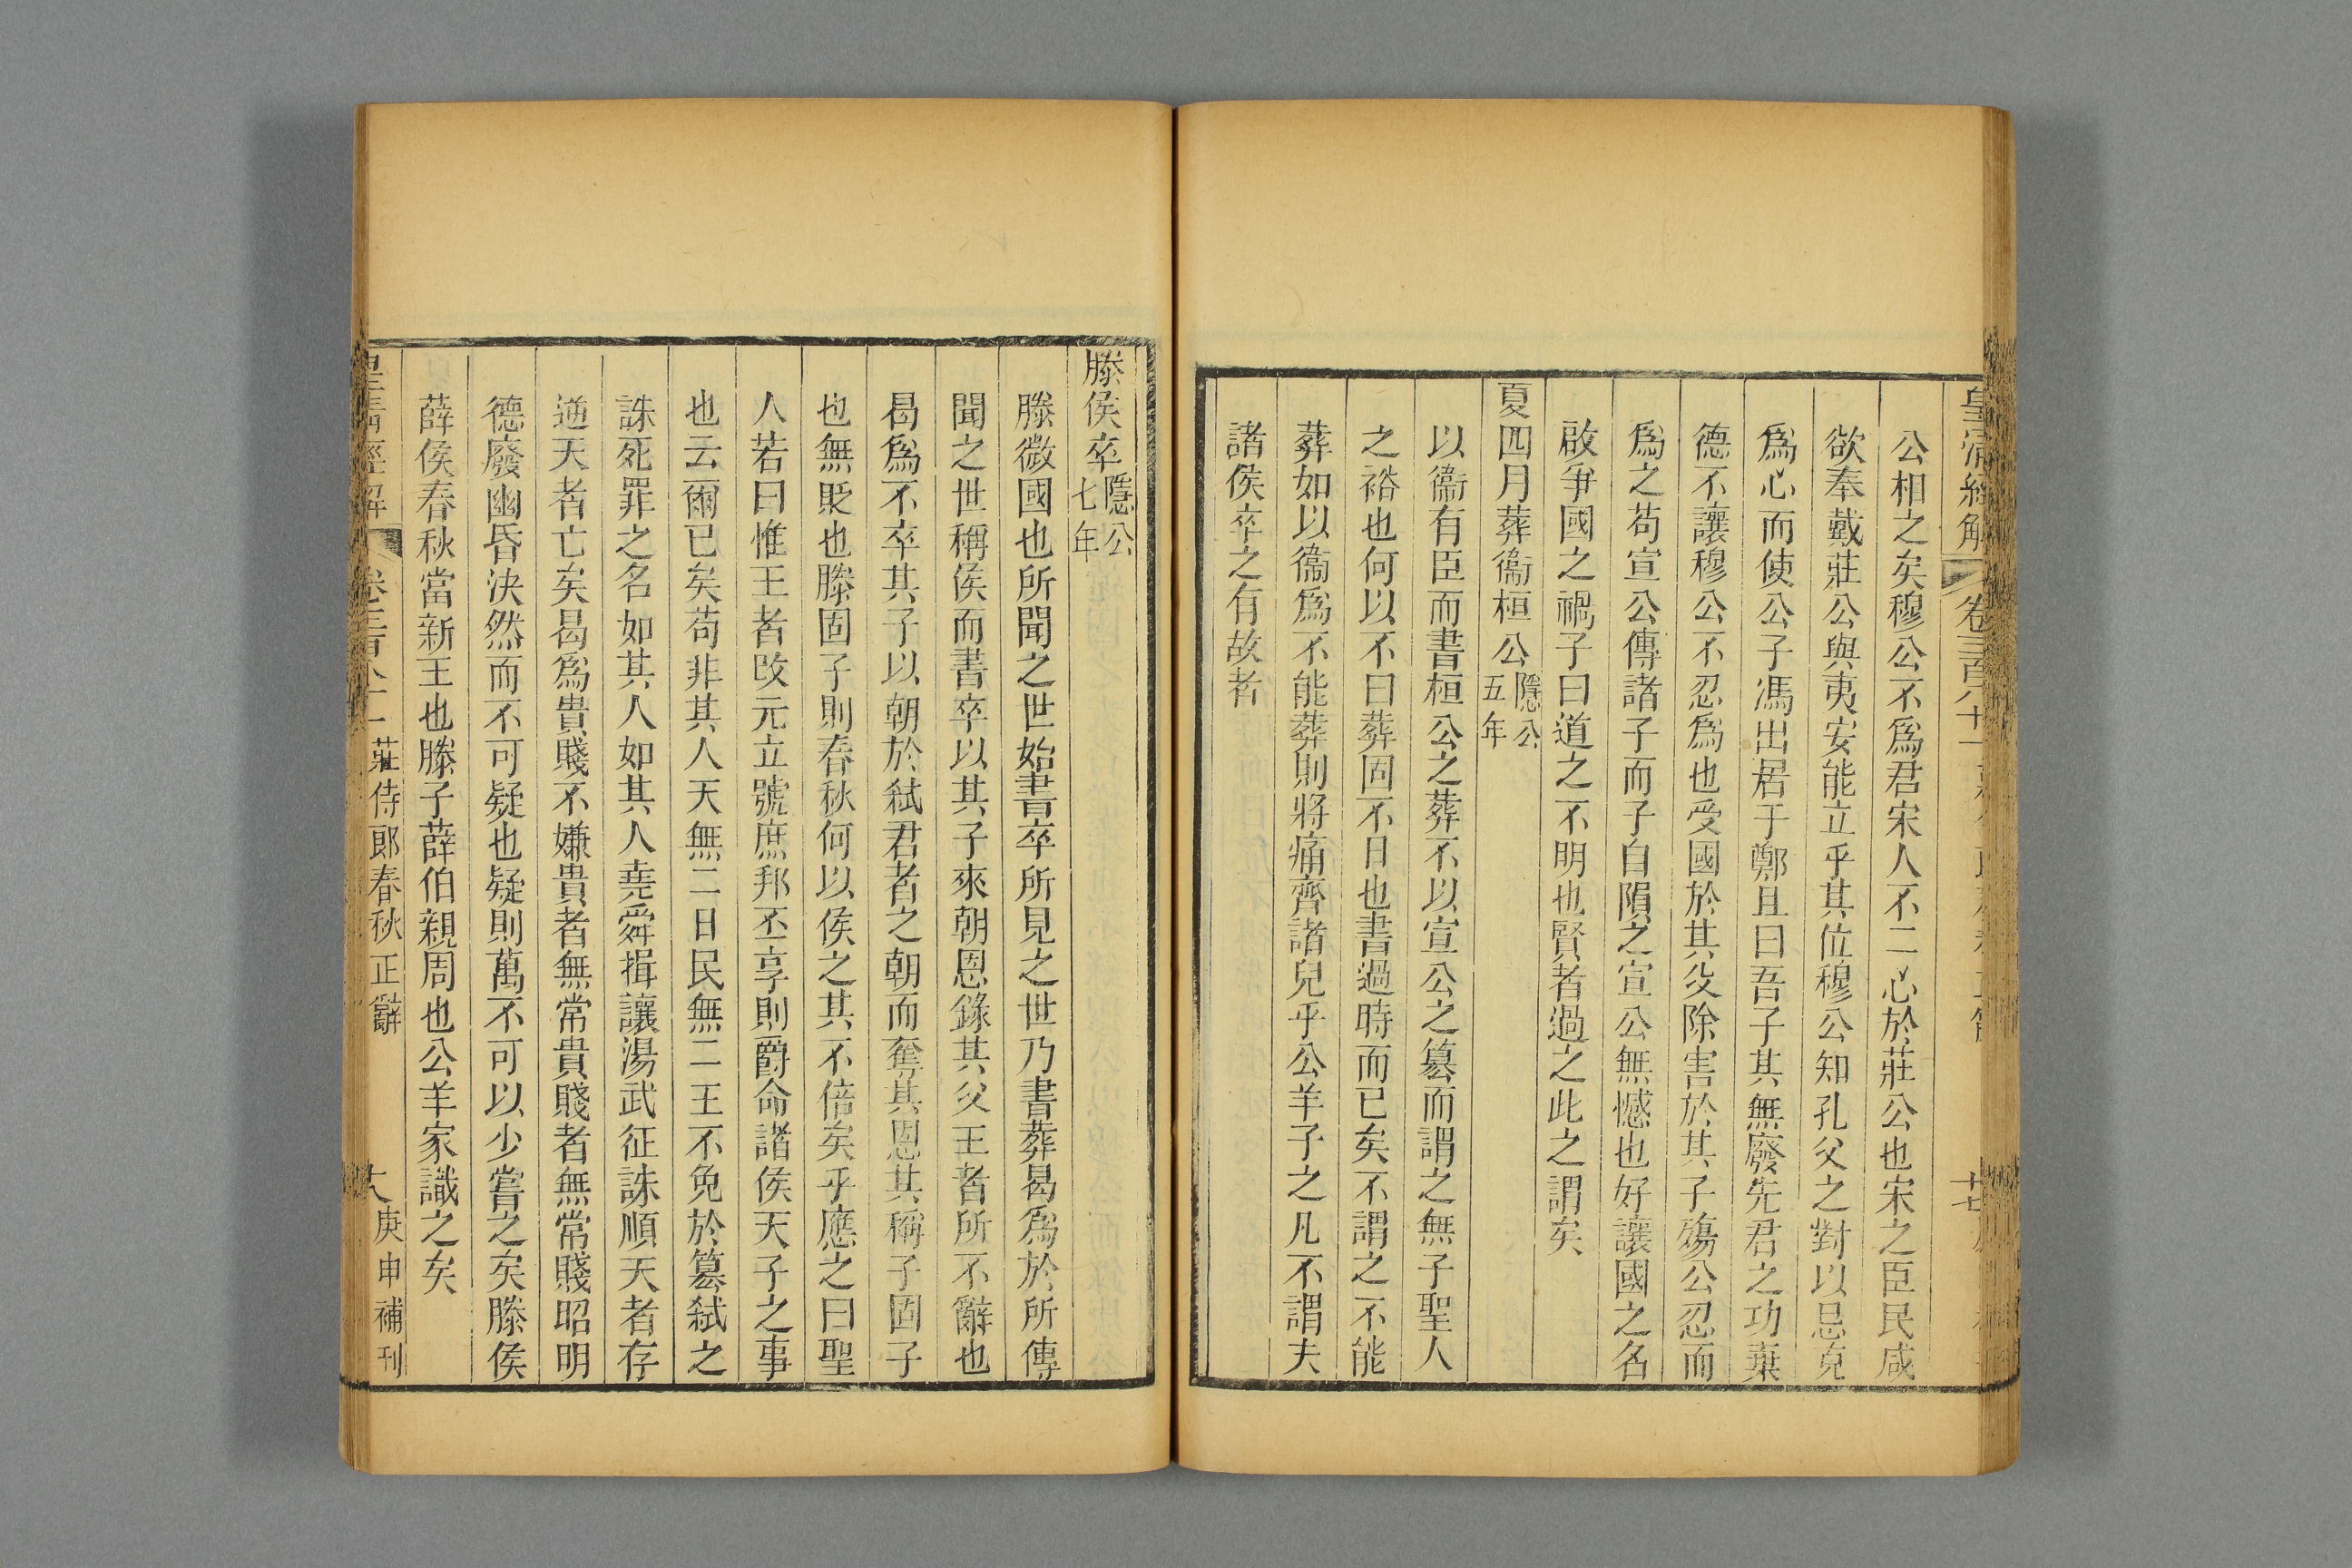 皇清經解 卷三百八十一 十七
公相之矣穆公不爲君宋人不二心於莊公也宋之臣民咸
欲奉戴莊公與夷安能立乎其位穆公知孔父之對以忌克
爲心而使公子馮出居于鄭且曰吾子其無廢先君之功棄
德不讓穆公不忍爲也受國於其父除害於其子殤公忍而
爲之茍宣公傳諸子而子自隕之宣公無憾也好讓國之名
啟爭國之禍子曰道之不明也賢者過之此之謂矣
夏四月葬衞桓公隱公五年
以衞有臣而書桓公之葬不以宣公之篡而謂之無子聖人
之裕也何以不曰葬固不日也書過時而已矣不謂之不能
葬如以衞爲不能葬則將痛齊諸兒乎公羊子之凡不謂夫
諸侯卒之有故者
滕侯卒隱公七年
滕微國也所聞之世始書卒所見之世乃書葬曷爲於所傳
聞之世稱侯而書卒以其子來朝恩錄其父王者所不辭也
曷爲不卒其子以朝於弑君者之朝而奪其恩其稱子固子
也無貶也滕固子則春秋何以侯之其不倍矣乎應之曰聖
人若曰惟王者改元立號庶邦丕享則爵命諸侯天子之事
也云爾已矣苟非其人天無二日民無二王不免於篡弑之
誅死罪之名如其人如其人堯舜揖讓湯武征誅順天者存
逆天者亡矣曷爲貴賤不嫌貴者無常貴賤者無常賤昭明
德廢幽昏決然而不可疑也疑則萬不可以少嘗之矣滕侯
薛侯春秋當新王也滕子薛伯親周也公羊家識之矣
皇清經解 卷三百八十一 莊侍郎春秋正辭 十八 庚申補刊